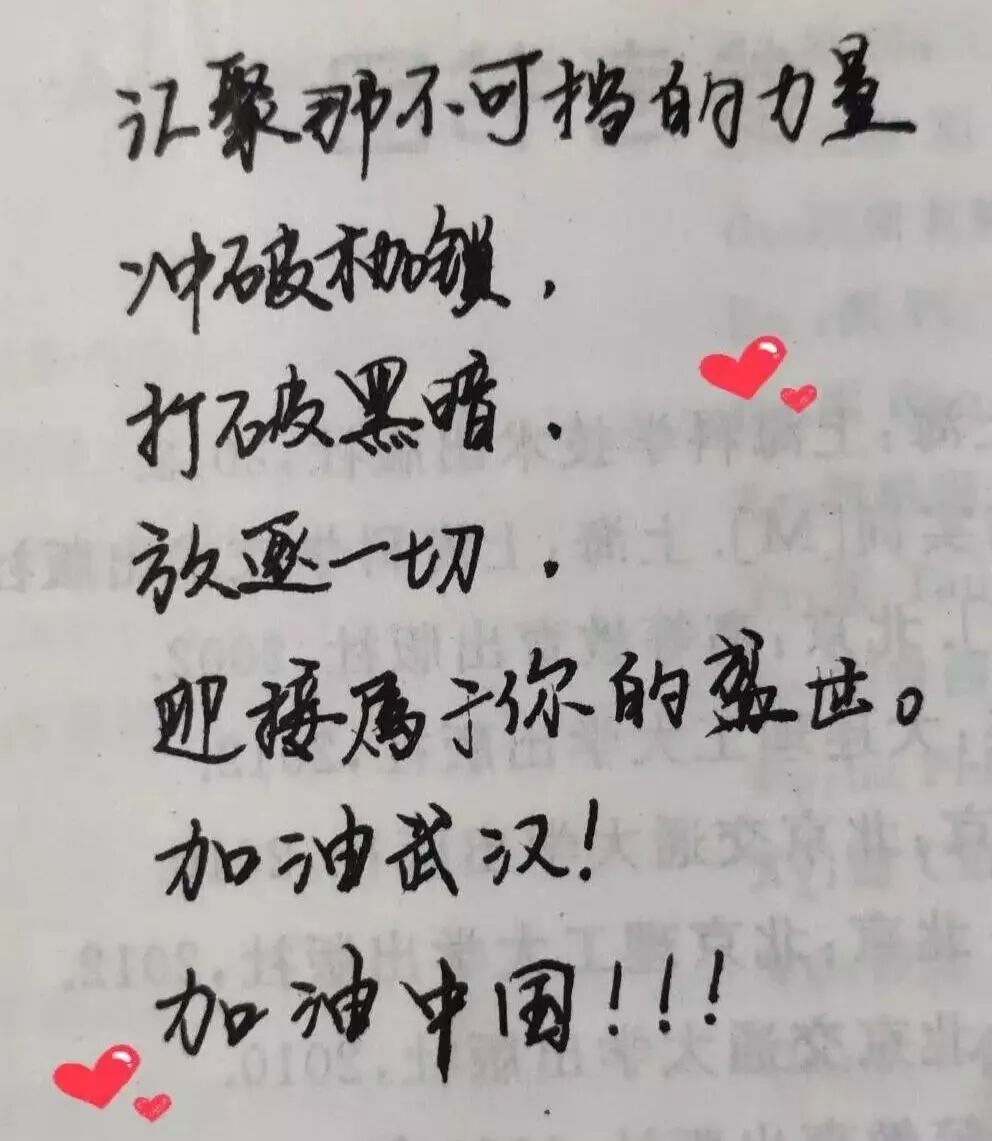 汇聚那不可挡的力量
冲破枷锁，
打破黑暗，
放逐一切，
迎接属于你的盛世。
加油武汉！
加油中国！！！